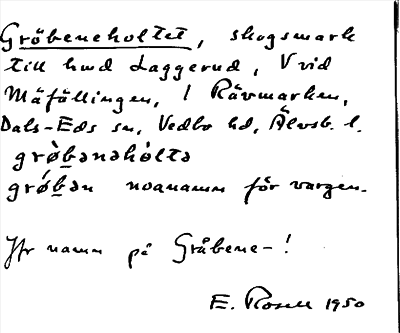 Gröbeneholtet, skogsmark
till hmd Laggerud, V vid
Mäfällingen, i Rävmarken,
Dals-Eds sn, Vedbo hd, Älvsb. l.
grø̀bənəhòltə
grǿbən noanamn för vargen.
Jfr namn på Gråbene-!
E. Rosell 1950